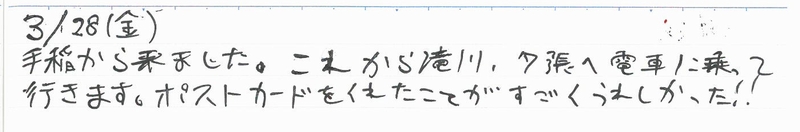 3/28(金)
手稲から来ました。これから滝川、夕張へ電車に乗って
行きます。ポストカードをくれたことがすごくうれしかった!!